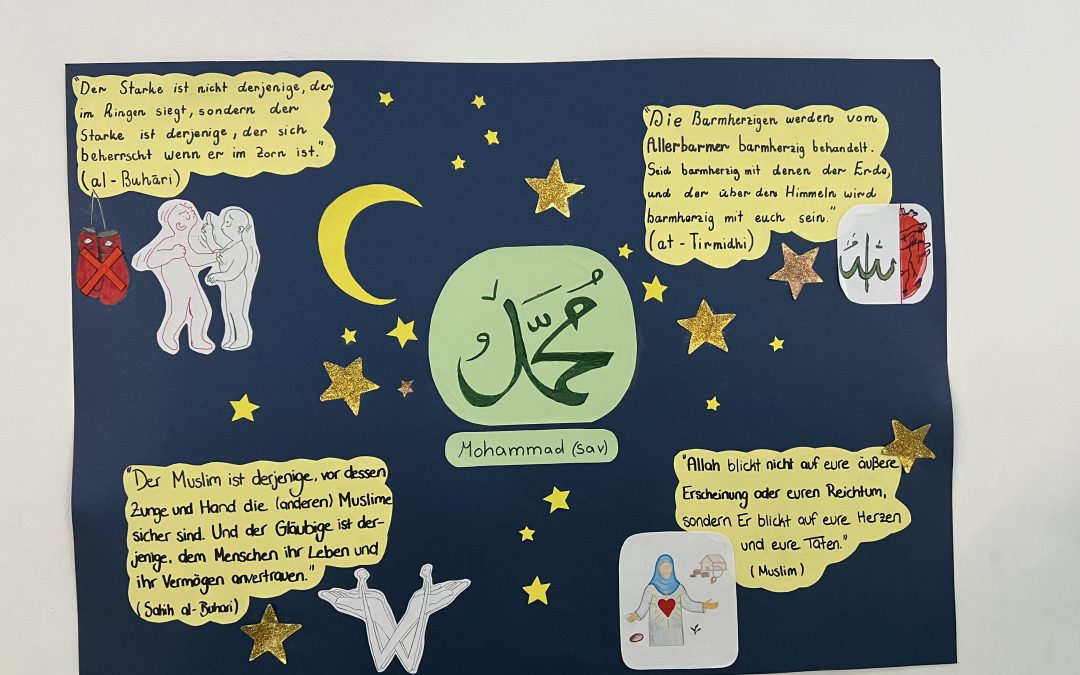 "Der Starke ist nicht derjenige, der
im Ringen siegt, sondern der
Starke ist derjenige, der sich
beherrscht wenn er im Zorn ist."
(al-Buhāri)
"Die Barmherzigen werden vom
Allerbarmer barmherzig behandelt.
Seid barmherzig mit denen der Erde,
und der über den Himmeln wird
barmherzig mit euch sein."
(at-Tirmidhi)
محمد
Mohammad (sav)
"Der Muslim ist derjenige, vor dessen
Zunge und Hand die (anderen) Muslime
sicher sind. Und der Gläubige ist der-
jenige, dem Menschen ihr Leben und
ihr Vermögen anvertrauen."
(Sahih al-Buhari)
"Allah blickt nicht auf eure äußere
Erscheinung oder euren Reichtum,
sondern Er blickt auf eure Herzen
und eure Taten."
(Muslim)